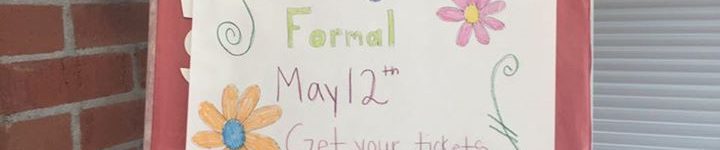 Formal
May 12th
Get your tickets